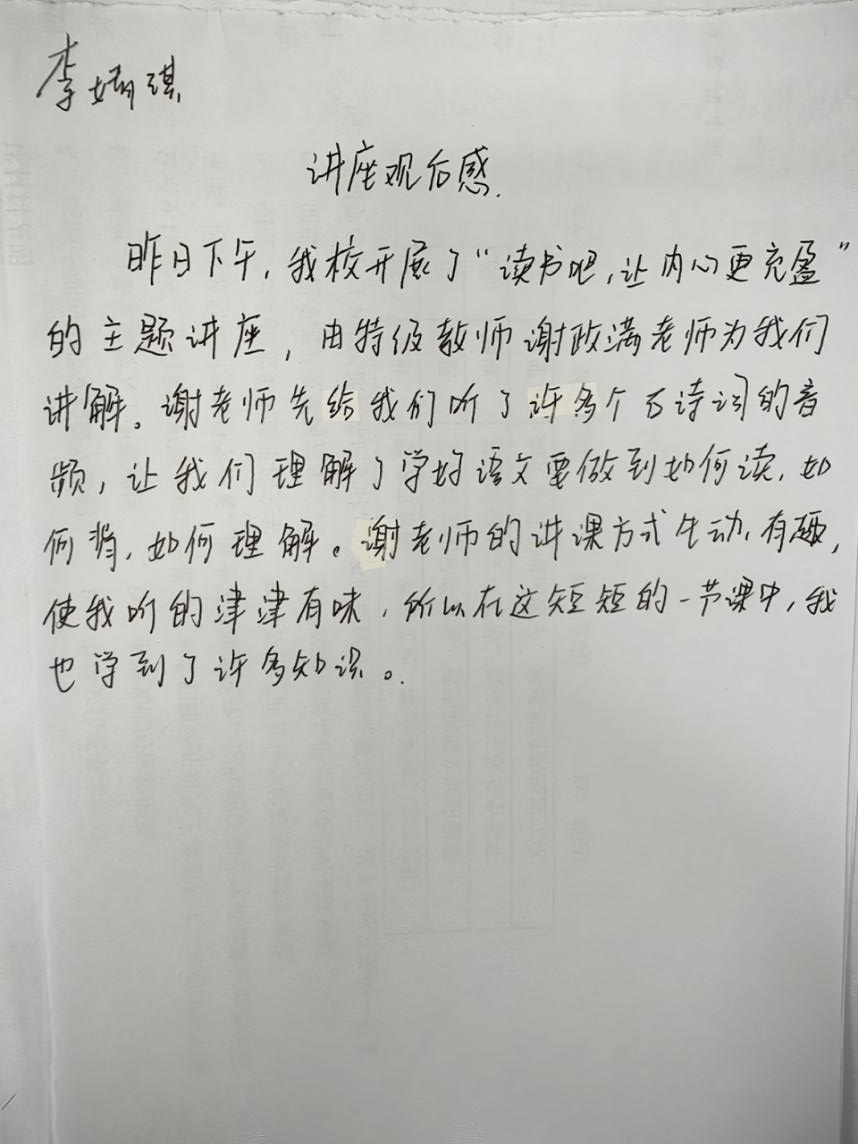 李婧琪
讲座观后感.
昨日下午,我校开展了“读书吧,让内心更充盈”
的主题讲座,由特级教师谢政满老师为我们
讲解。谢老师先给我们听了许多个古诗词的音
频,让我们理解了学好语文要做到如何读,如
何背,如何理解。谢老师的讲课方式生动、有趣,
使我听的津津有味,所以在这短短的一节课中,我
也学到了许多知识。